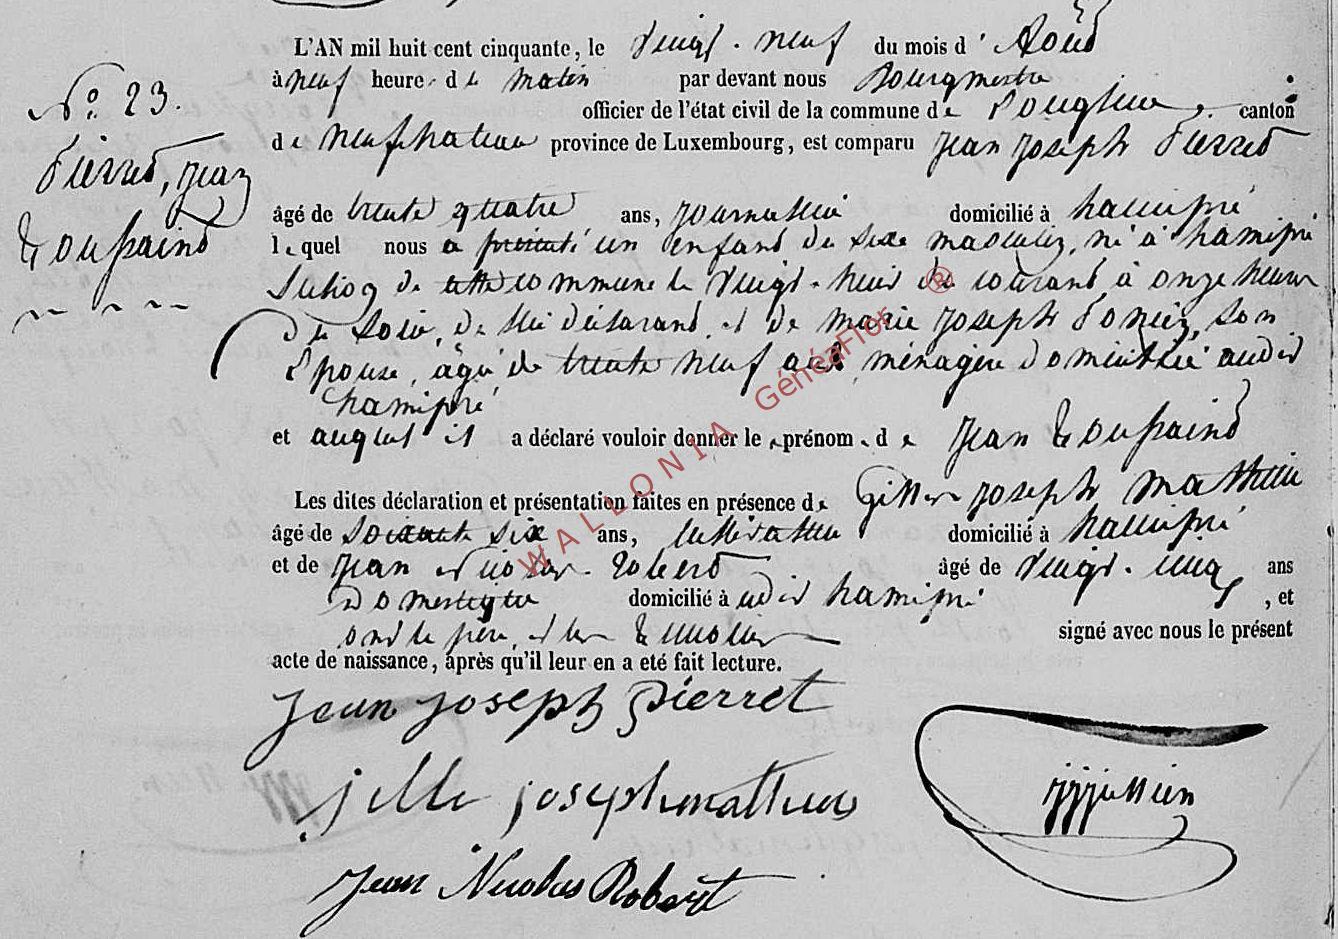 L'AN mil huit cent cinquante, le vingt-neuf du mois d'Août
N° 23. à neuf heures de matin par devant nous Bourgmestre
officier de l'état civil de la commune de canton
Pierret, Jean de neufchateau province de Luxembourg, est comparu Jean Joseph Pierret
Toussaint âgé de trente quatre ans, journalier domicilié à hamipré
lequel nous a présenté un enfant de sexe masculin, né à hamipré
de cette commune le vingt-huit du courant à onze heures
du soir, de lui déclarant et de marie joseph son
épouse, âgée de trente neuf ans ménagère domiciliée audit
hamipré
et auquel il a déclaré vouloir donner les prénoms de Jean Toussaint
Les dites déclaration et présentation faites en présence de joseph mathieu
âgé de soixante six ans, cultivateur domicilié à hamipré
et de jean nicolas Robert âgé de vingt-cinq ans
domestique domicilié à udit hamipré, et
ont le père, et les témoins signé avec nous le présent
acte de naissance, après qu'il leur en a eté fait lecture.
Jean joseph pierret
jille josephmathieu
Jean Nicolas Robert
WALLONIA GénéaFlor ®